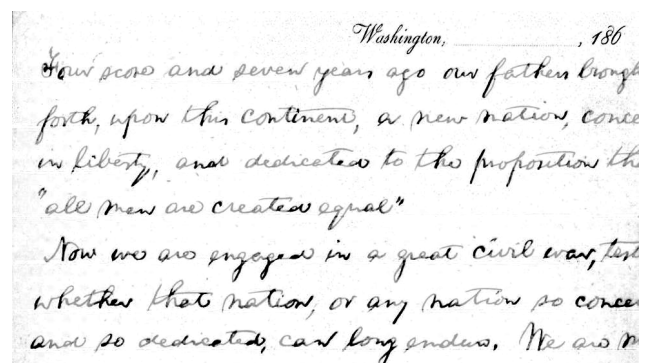 Washington, , 186
Four score and seven years ago our fathers brough
forth, upon this continent, a new nation, conce
in liberty, and dedicated to the proposition th
"all men are created equal"
Now we are engaged in a great civil war, test
whether that nation, or any nation so concei
and so dedicated, can long endure. We are m